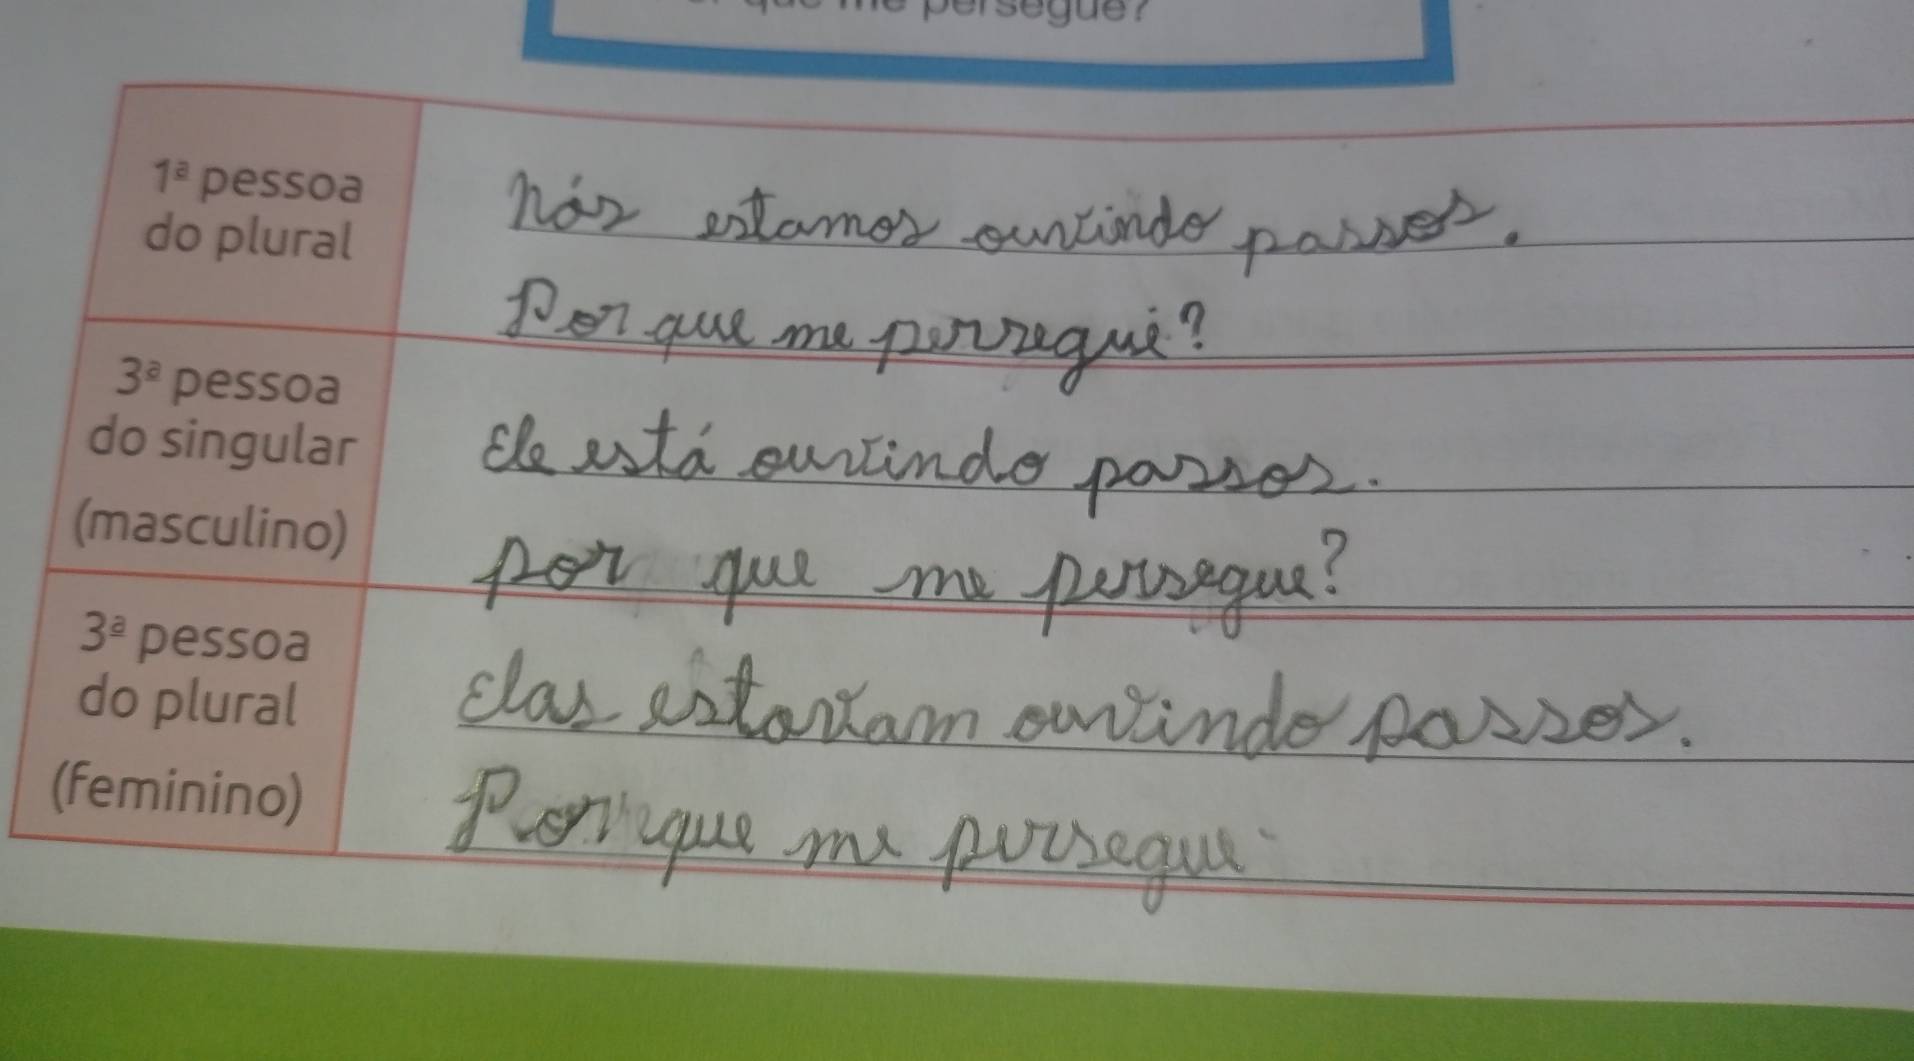 que me persegue?
1ª pessoa
do plural
Nós estamos ouvindo passos.
Por que me persegui?
3ª pessoa
do singular
(masculino)
Ele está ouvindo passos.
por que me persegue?
3ª pessoa
do plural
(feminino)
Elas estavam ouvindo passos.
Por que me persegue